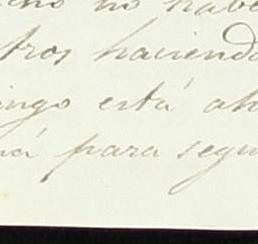 no habe
tros haciendo
ingo está aho
rá para segui